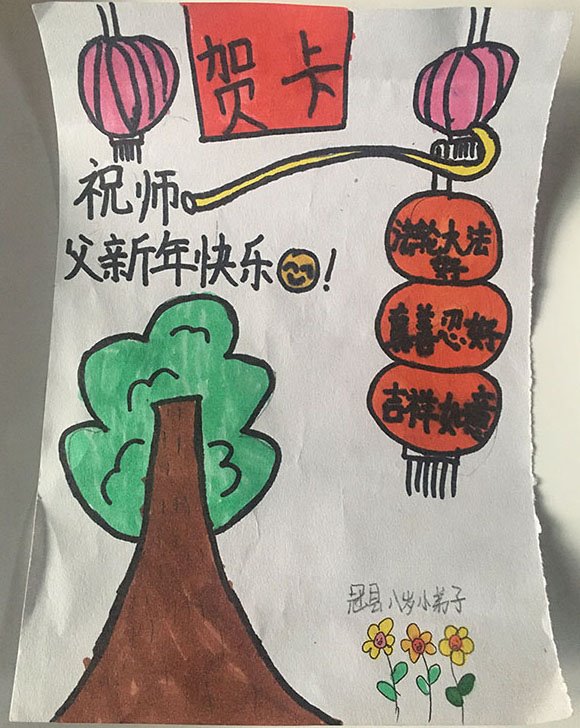 贺卡
祝师
父新年快乐!
法轮大法
好
真善忍好
吉祥如意
冠县八岁小弟子